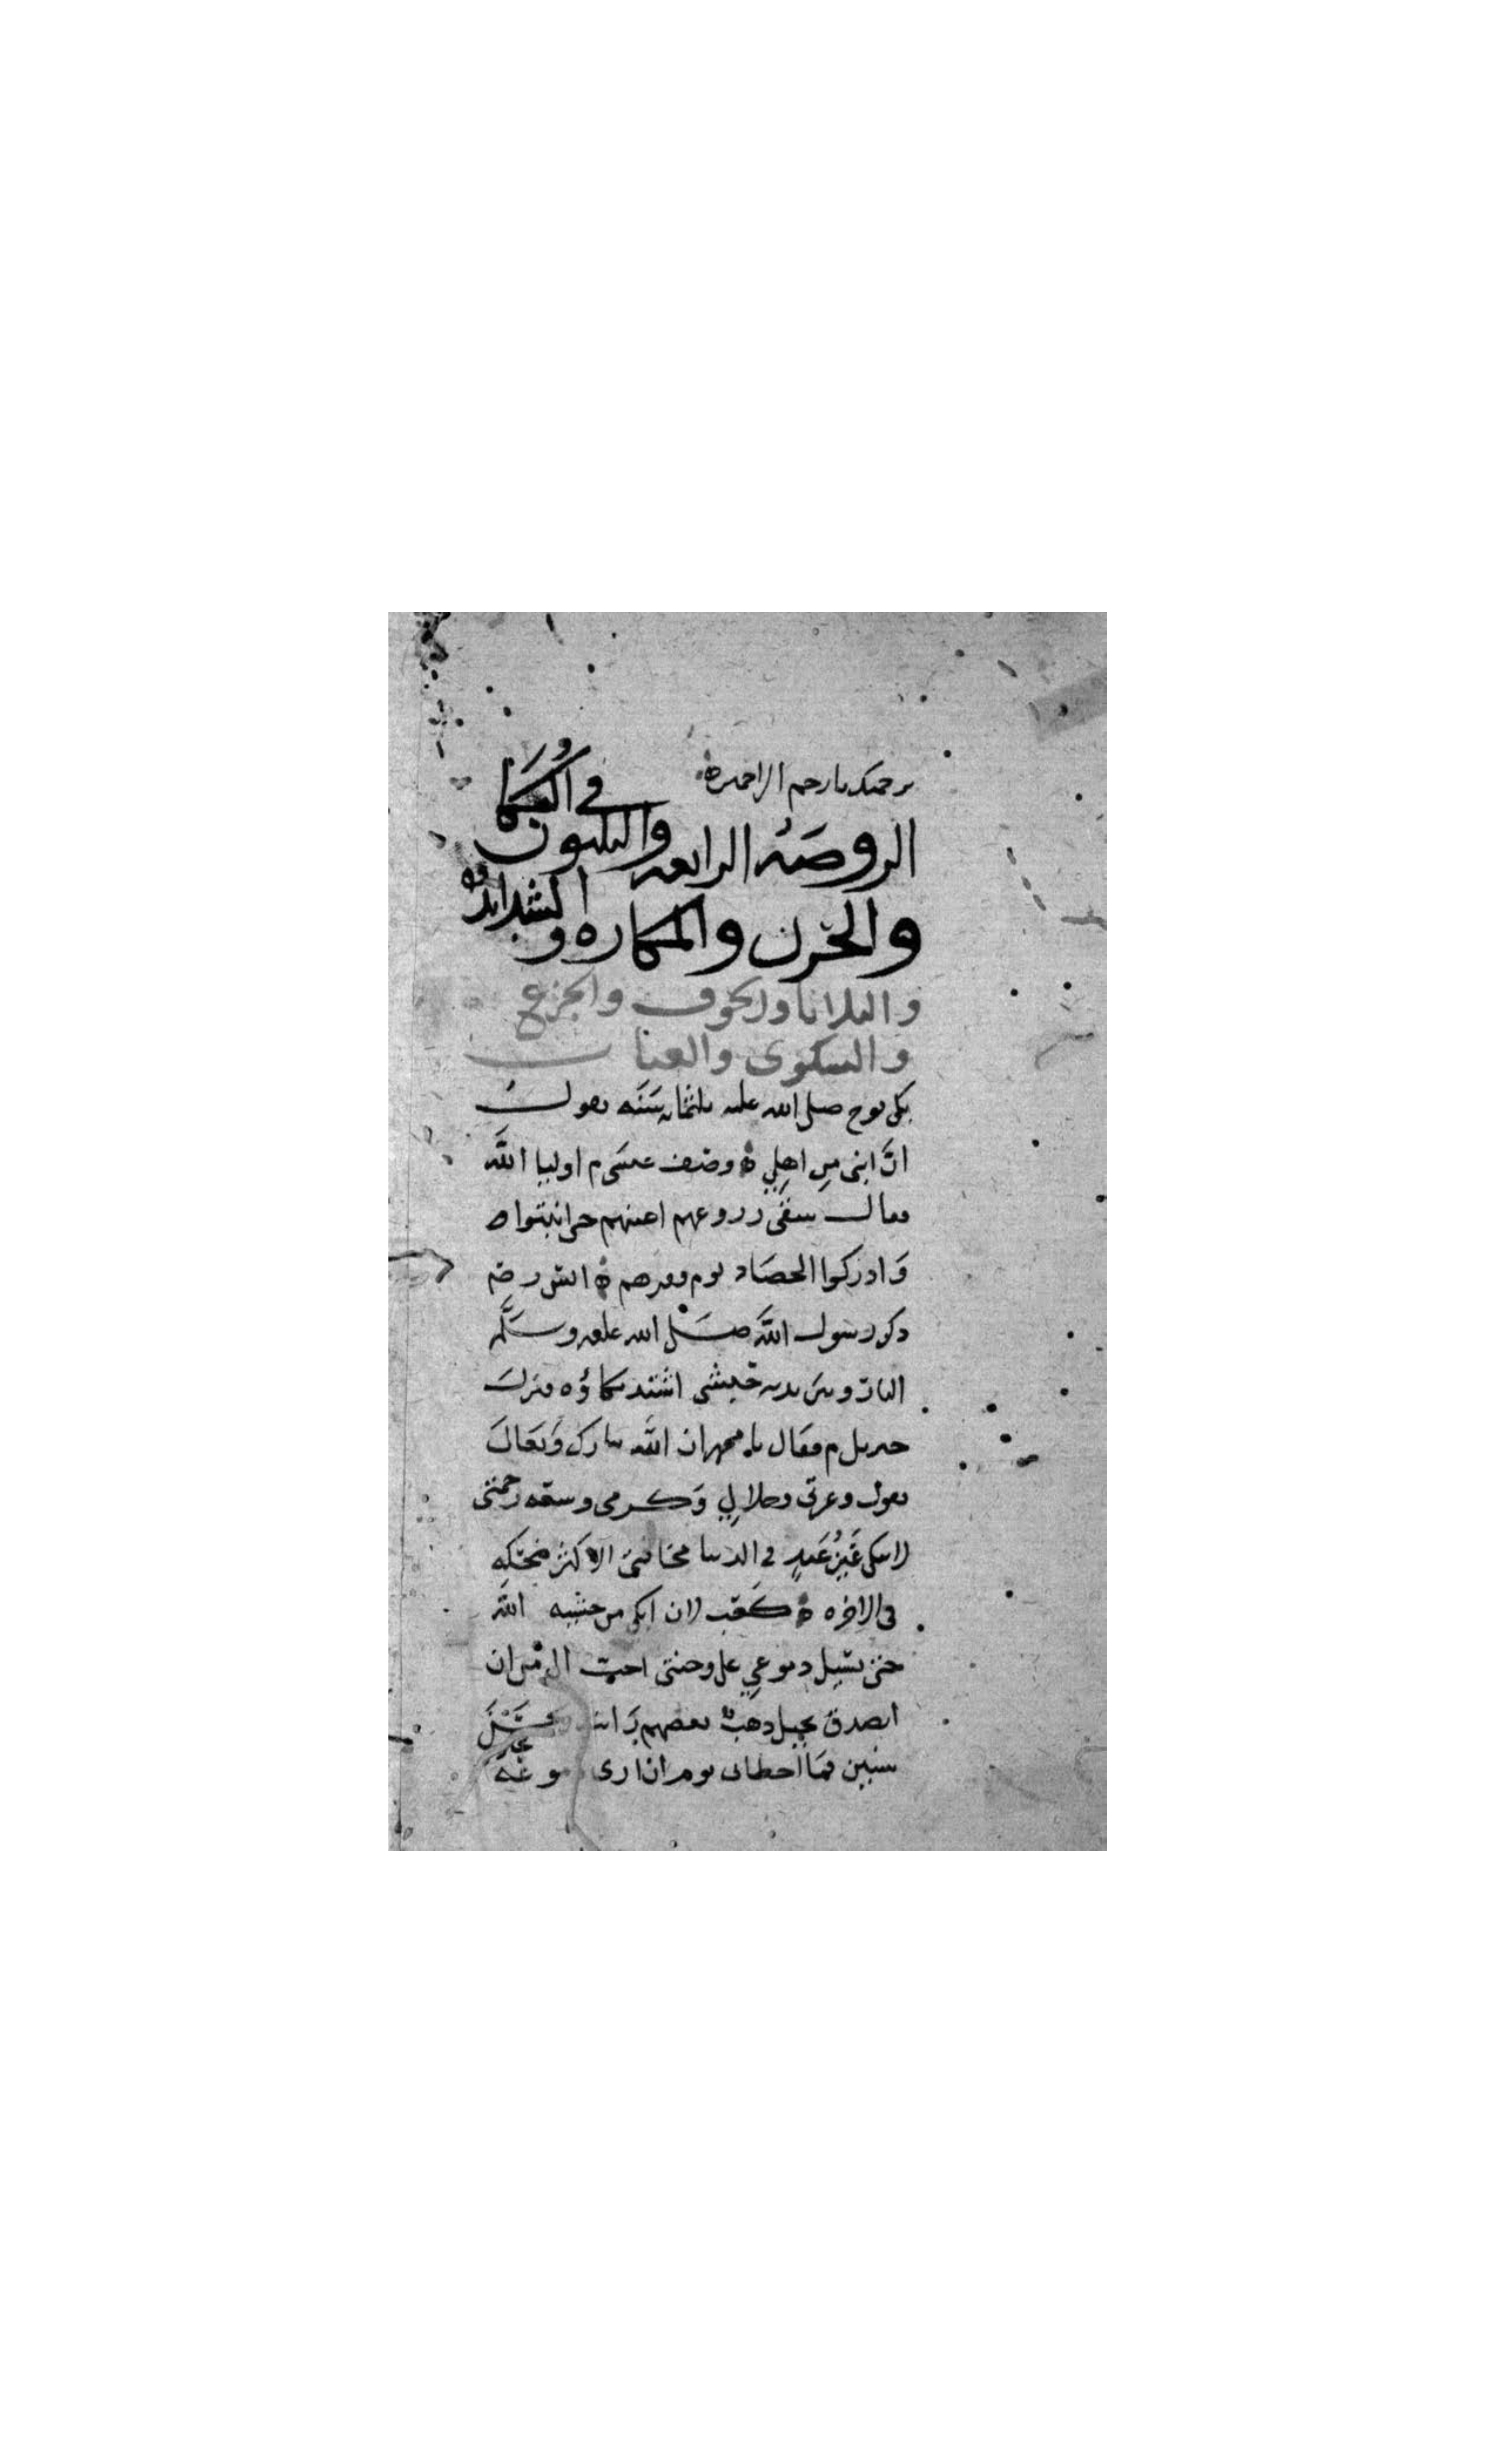 برحمتك يا ارحم الراحمين
الروضة الرابعة والثلثون في البكا
والحزن والمكاره والشدايد
والبلايا والخوف والجزع
والشكوى والعتاب
بكى نوح صلى الله عليه ثلثمايه سنَه يقول
انَّ ابنى مِن اهلِي ه وصف عيسَى م اوليا اللَّه
فقال سقى زروعهم اعينهم حتى انبتوا
وَادركوا الحصَاد يوم فقرهم ه انس رضه
ذكر رسول اللَّه صلى الله عليه وسلَّم
النار وبين يديه حبشى اشتد بكاؤه فنزلَ
جبريل م فقال يا محمد ان اللَّه تبارك وَتعَالَى
يقول وعزتى وجلالِي وَكرمى وسعه رحمتى
لا تبكى عَينُ عَبدٍ في الدنيا مخافتى الا اكثر ضحكه
في الاخره ه كعب لان ابكى من خشيه اللَّه
حتى تسيل دموعِي على وجنتى احب الى من ان
اتصدق بجبل ذهب ه بعضهم
سنين فمَا اخطانى يوم ان ارى دموعه